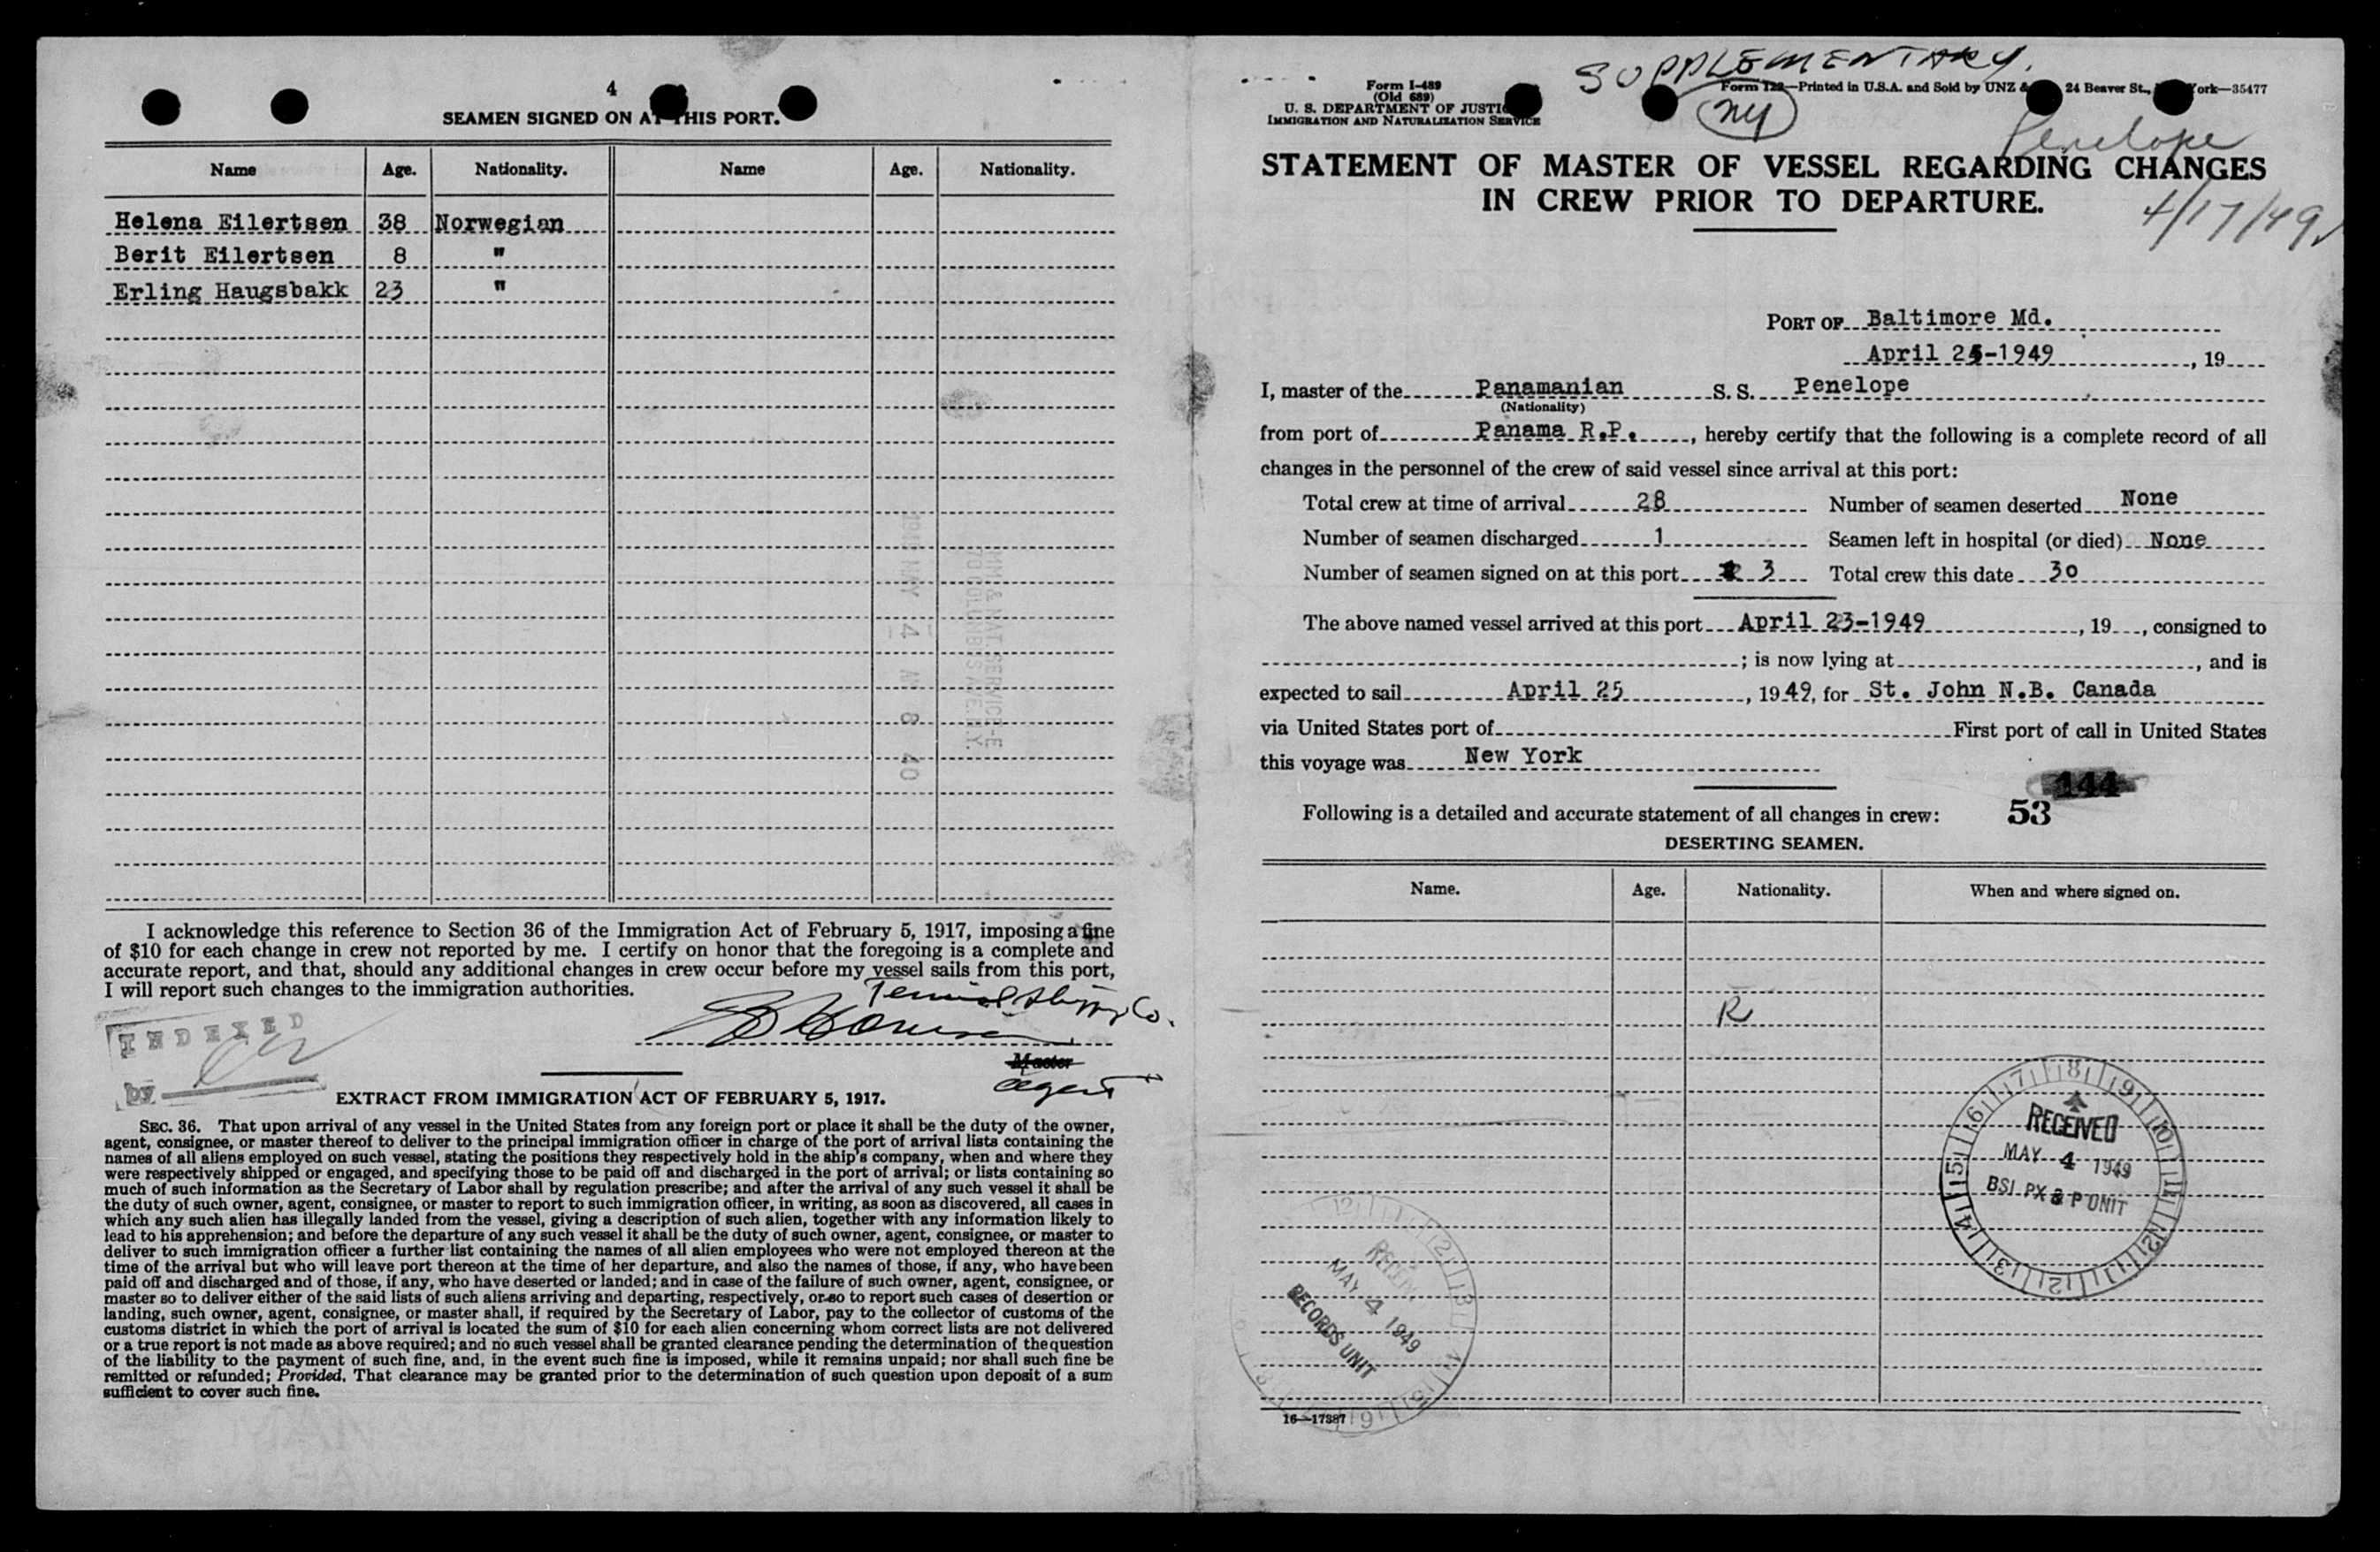 4
SEAMEN SIGNED ON AT THIS PORT.
Name Age. Nationality. Name Age. Nationality.
Helena Eilertsen 38 Norwegian
Berit Eilertsen 8 "
Erling Haugsbakk 23 "
I acknowledge this reference to Section 36 of the Immigration Act of February 5, 1917, imposing a fine
of $10 for each change in crew not reported by me. I certify on honor that the foregoing is a complete and
accurate report, and that, should any additional changes in crew occur before my vessel sails from this port,
I will report such changes to the immigration authorities.
Co.
INDEXED
by
Master
agent
EXTRACT FROM IMMIGRATION ACT OF FEBRUARY 5, 1917.
SEC. 36. That upon arrival of any vessel in the United States from any foreign port or place it shall be the duty of the owner,
agent, consignee, or master thereof to deliver to the principal immigration officer in charge of the port of arrival lists containing the
names of all aliens employed on such vessel, stating the positions they respectively hold in the ship's company, when and where they
were respectively shipped or engaged, and specifying those to be paid off and discharged in the port of arrival; or lists containing so
much of such information as the Secretary of Labor shall by regulation prescribe; and after the arrival of any such vessel it shall be
the duty of such owner, agent, consignee, or master to report to such immigration officer, in writing, as soon as discovered, all cases in
which any such alien has illegally landed from the vessel, giving a description of such alien, together with any information likely to
lead to his apprehension; and before the departure of any such vessel it shall be the duty of such owner, agent, consignee, or master to
deliver to such immigration officer a further list containing the names of all alien employees who were not employed thereon at the
time of the arrival but who will leave port thereon at the time of her departure, and also the names of those, if any, who have been
paid off and discharged and of those, if any, who have deserted or landed; and in case of the failure of such owner, agent, consignee, or
master so to deliver either of the said lists of such aliens arriving and departing, respectively, or so to report such cases of desertion or
landing, such owner, agent, consignee, or master shall, if required by the Secretary of Labor, pay to the collector of customs of the
customs district in which the port of arrival is located the sum of $10 for each alien concerning whom correct lists are not delivered
or a true report is not made as above required; and no such vessel shall be granted clearance pending the determination of the question
of the liability to the payment of such fine, and, in the event such fine is imposed, while it remains unpaid; nor shall such fine be
remitted or refunded; Provided, That clearance may be granted prior to the determination of such question upon deposit of a sum
sufficient to cover such fine.
SUPPLEMENTARY.
Form I-489
(Old 689)
U. S. DEPARTMENT OF JUSTICE
IMMIGRATION AND NATURALIZATION SERVICE
Form 122—Printed in U.S.A. and Sold by UNZ & 24 Beaver St., York—35477
NY
Penelope
STATEMENT OF MASTER OF VESSEL REGARDING CHANGES
IN CREW PRIOR TO DEPARTURE.
4/17/49
PORT OF Baltimore Md.
April 25-1949, 19
I, master of the Panamanian S. S. Penelope
(Nationality)
from port of Panama R.P., hereby certify that the following is a complete record of all
changes in the personnel of the crew of said vessel since arrival at this port:
Total crew at time of arrival 28 Number of seamen deserted None
Number of seamen discharged 1 Seamen left in hospital (or died) None
Number of seamen signed on at this port 3 Total crew this date 30
The above named vessel arrived at this port April 23-1949, 19, consigned to
; is now lying at, and is
expected to sail April 25, 1949, for St. John N.B. Canada
via United States port of First port of call in United States
this voyage was New York
144
Following is a detailed and accurate statement of all changes in crew: 53
DESERTING SEAMEN.
Name. Age. Nationality. When and where signed on.
R
RECEIVED
MAY 4 1949
BSI PX & P UNIT
MAY 4 1949
RECORDS UNIT
16—17387